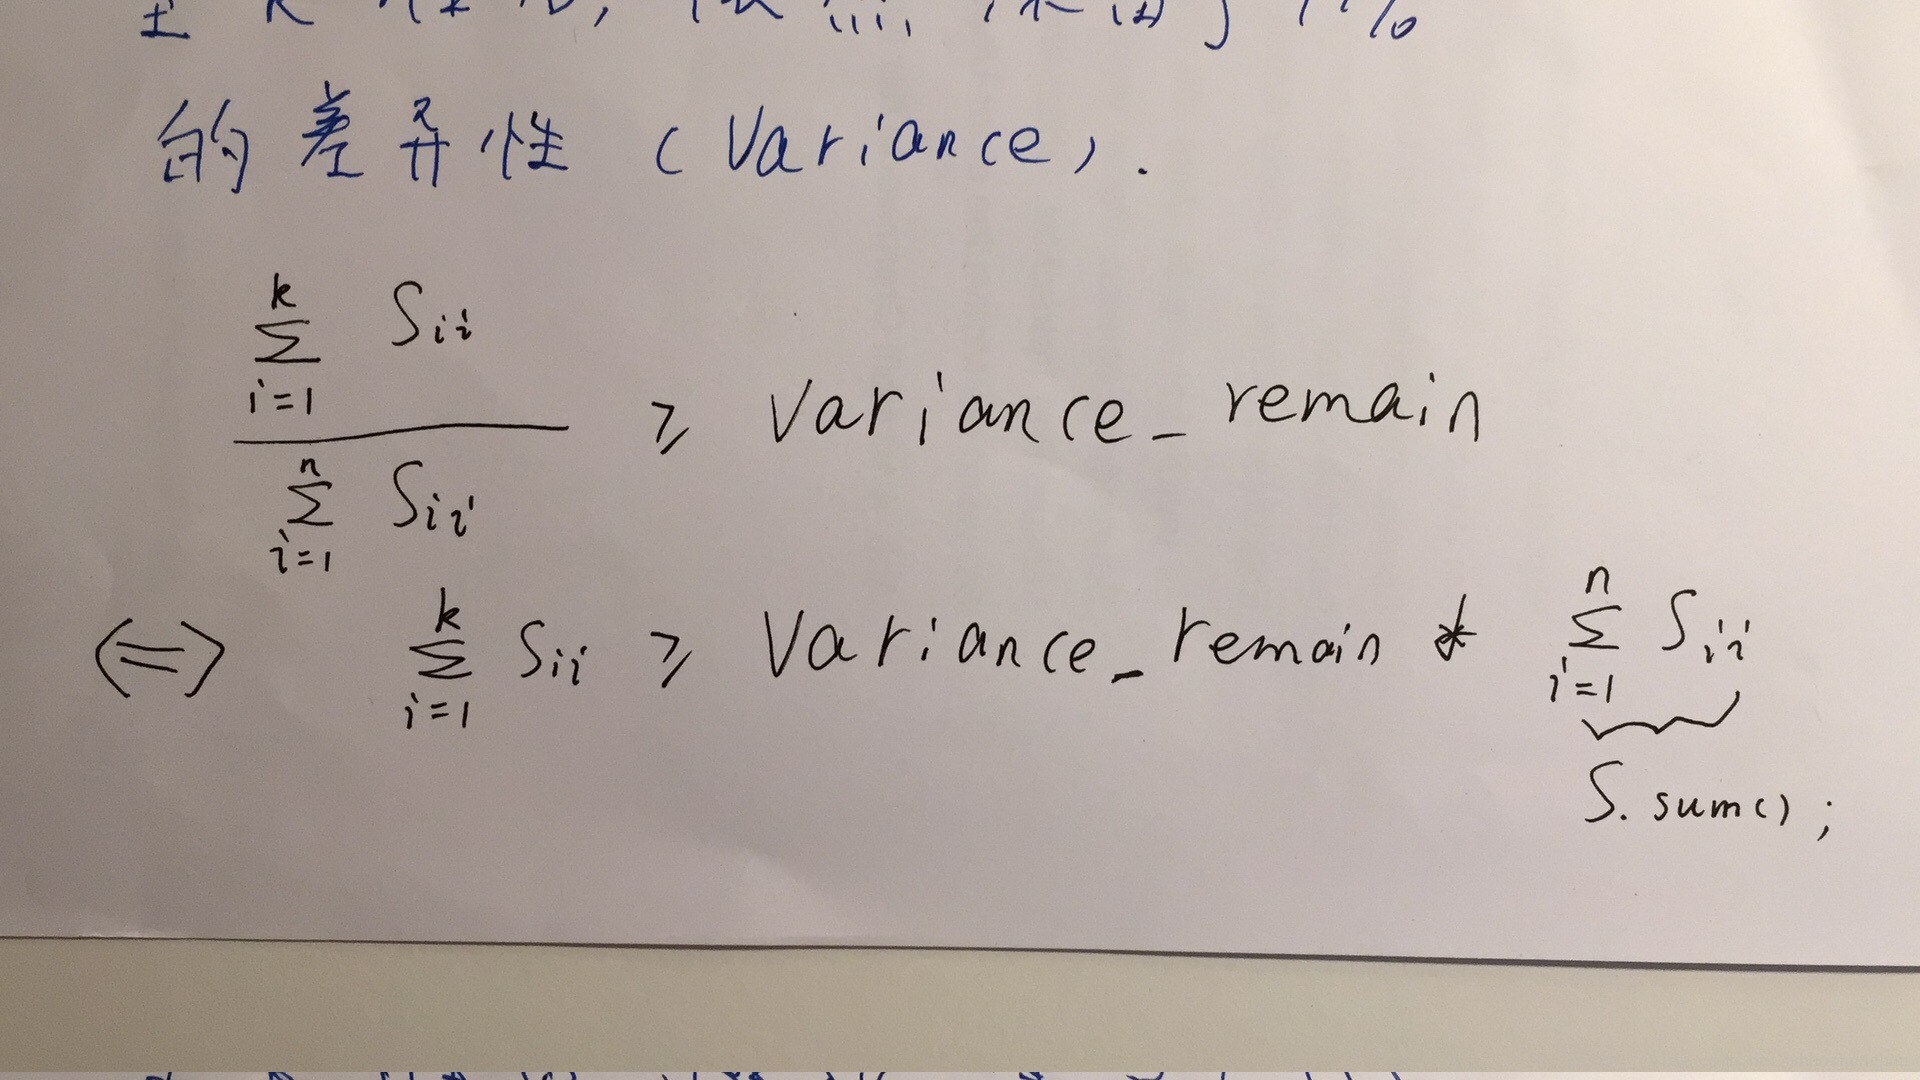 的差异性 (Variance).
\frac{\sum_{i=1}^{k} S_{ii}}{\sum_{i=1}^{n} S_{ii}} ≥ variance_remain
<=> \sum_{i=1}^{k} S_{ii} ≥ Variance_remain * \sum_{i=1}^{n} S_{ii}
S.sum();